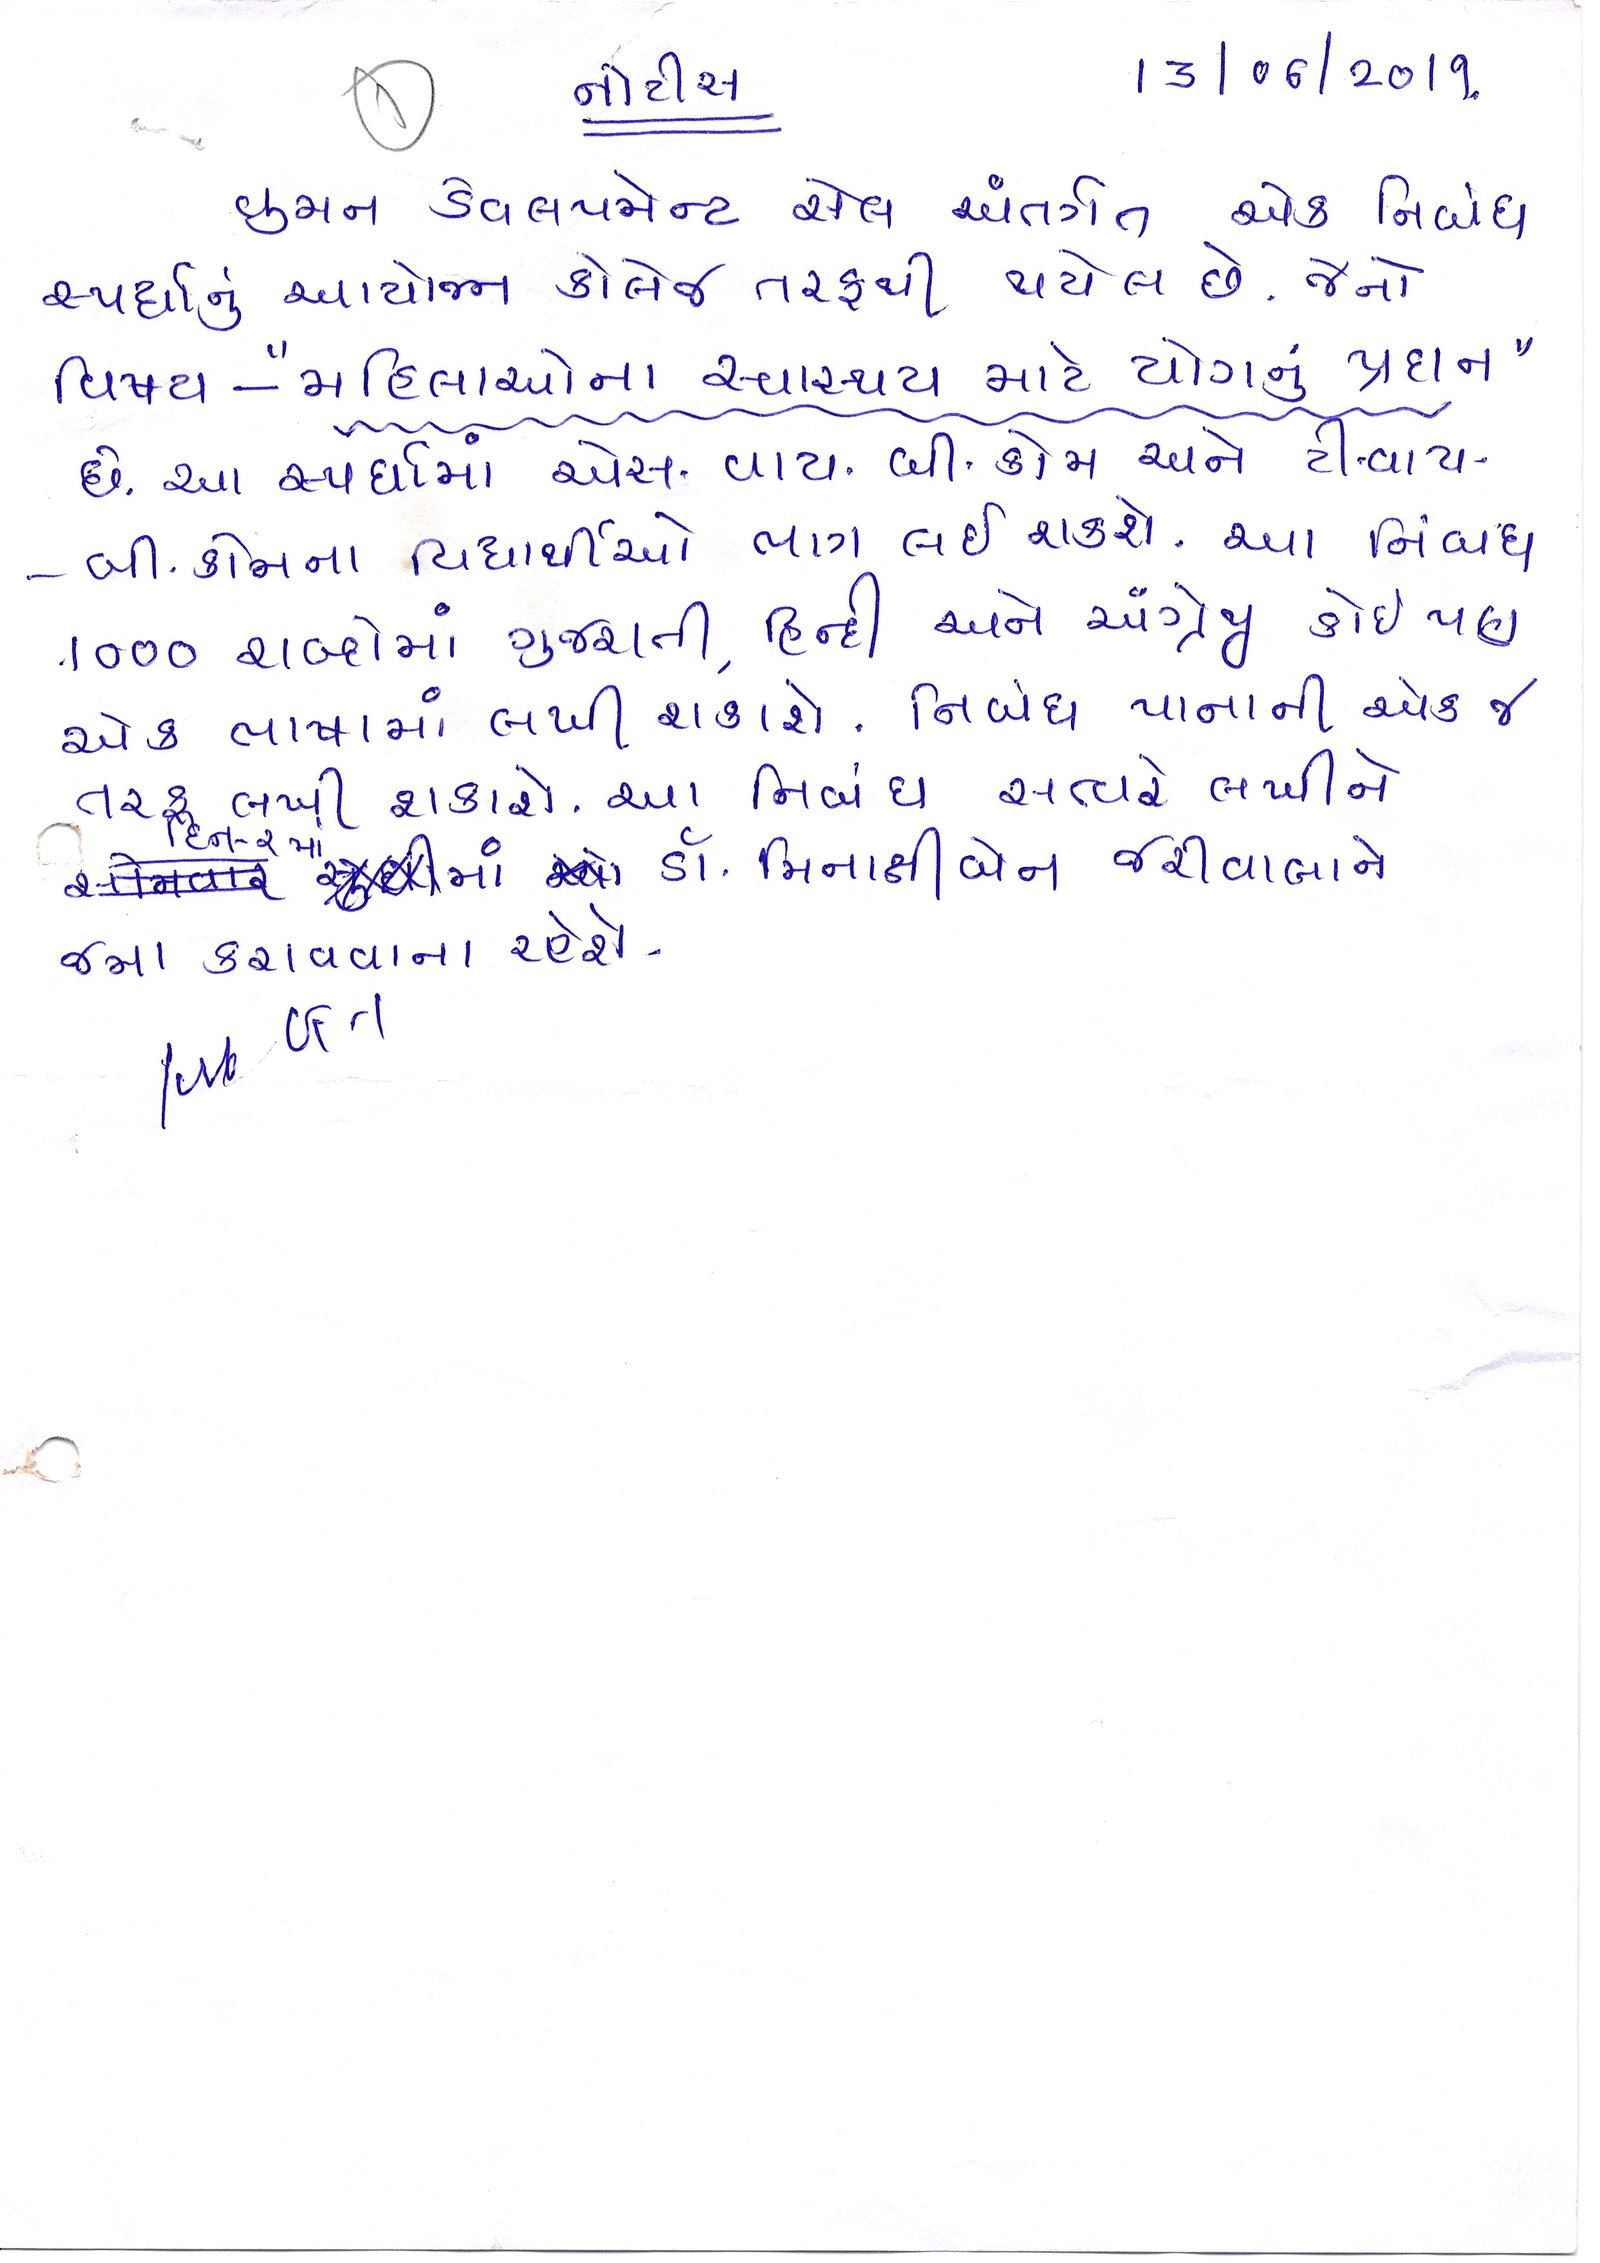 નોટીસ 13/06/2019
વુમન ડેવલપમેન્ટ સેલ અંતર્ગત એક નિબંધ
સ્પર્ધાનું આયોજન કોલેજ તરફથી થયેલ છે. જેનો
વિષય – "મહિલાઓના સ્વાસ્થય માટે યોગનું પ્રદાન"
છે. આ સ્પર્ધામાં એસ. વાય. બી. કોમ અને ટી.વાય.
– બી. કોમના વિદ્યાર્થીઓ ભાગ લઈ શકશે. આ નિબંધ
1000 શબ્દોમાં ગુજરાતી, હિન્દી અને અંગ્રેજી કોઈ પણ
એક ભાષામાં લખી શકાશે. નિબંધ પાનાની એક જ
તરફ લખી શકાશે. આ નિબંધ સત્વરે લખીને
દિન-૨ માં
સોમવાર સુધીમાં ડૉ. મિનાક્ષીબેન જરીવાલાને
જમા કરાવવાના રહેશે.